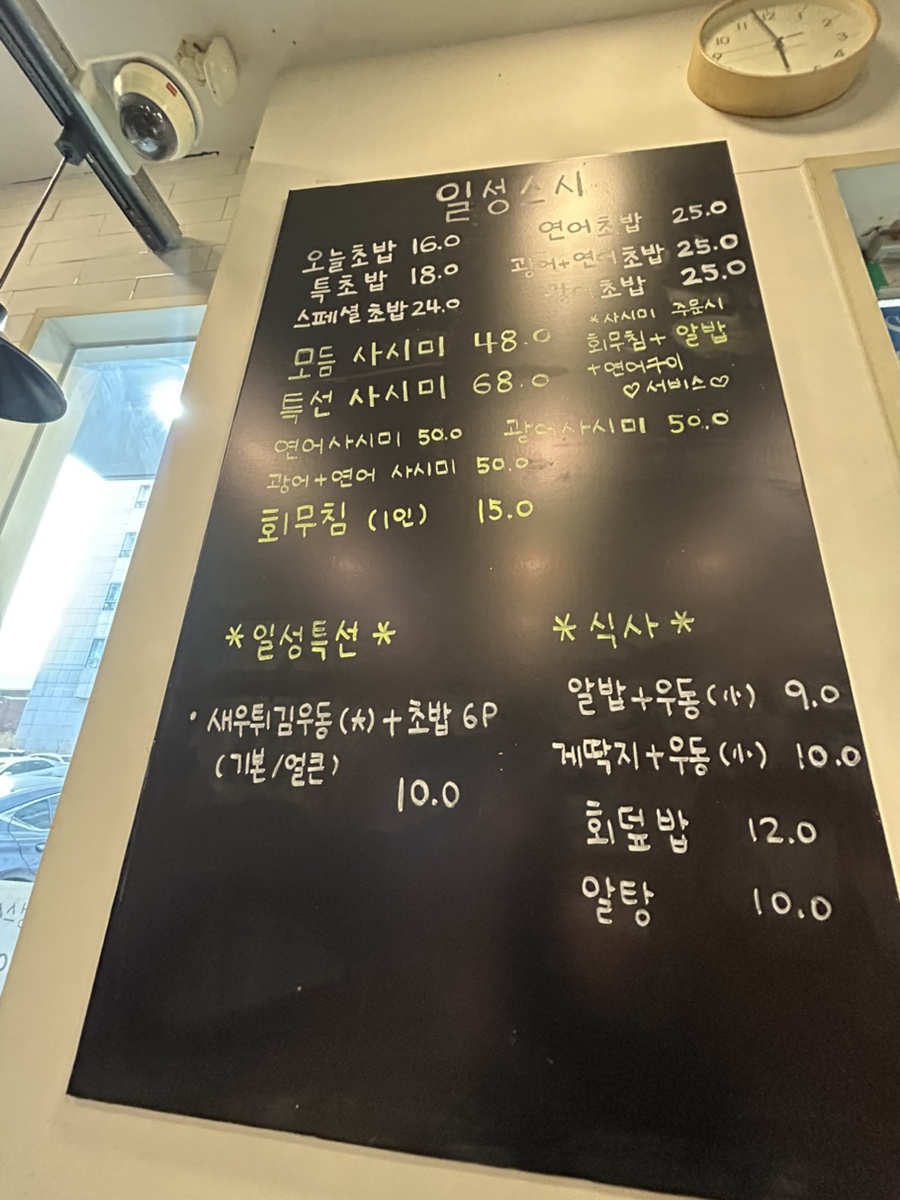 일성스시
오늘초밥 16.0
특초밥 18.0
스페셜초밥 24.0
연어초밥 25.0
광어+연어초밥 25.0
광어초밥 25.0
*사시미 주문시
회무침+알밥
+연어구이
♡서비스♡
모듬 사시미 48.0
특선 사시미 68.0
연어사시미 50.0
광어사시미 50.0
광어+연어 사시미 50.0
회무침 (1인) 15.0
*일성특선*
• 새우튀김우동(大)+초밥 6P
(기본/얼큰)
10.0
*식사*
알밥+우동(小) 9.0
게딱지+우동(小) 10.0
회덮밥 12.0
알탕 10.0